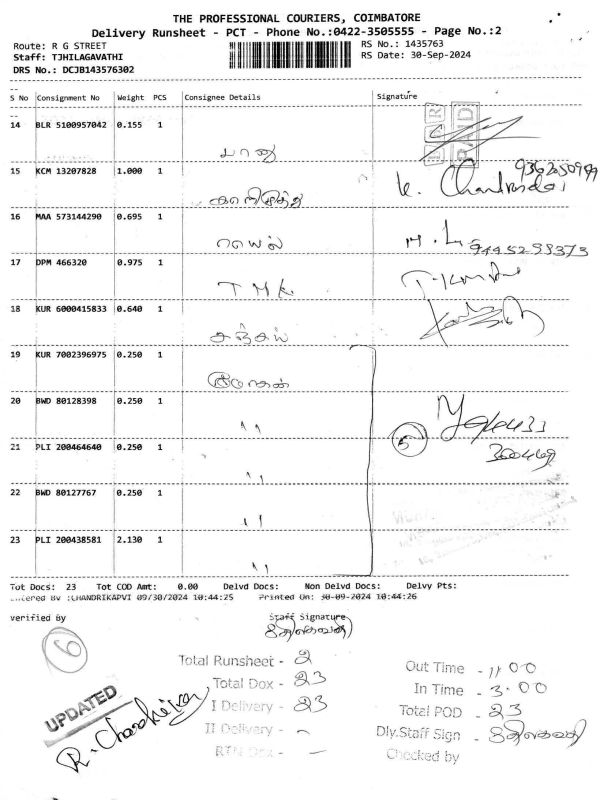 THE PROFESSIONAL COURIERS, COIMBATORE
Delivery Runsheet - PCT - Phone No.:0422-3505555 - Page No.:2
Route: R G STREET
RS No.: 1435763
Staff: TJHILAGAVATHI
RS Date: 30-Sep-2024
DRS No.: DCJB143576302
S No Consignment No Weight PCS Consignee Details Signature
14 BLR 5100957042 0.155 1 பானு
15 KCM 13207828 1.000 1 K.
16 MAA 573144290 0.695 1
17 DPM 466320 0.975 1 TMK
18 KUR 6000415833 0.640 1 சஞ்சய்
19 KUR 7002396975 0.250 1
20 BWD 80128398 0.250 1 " 5
21 PLI 200464640 0.250 1 "
22 BWD 80127767 0.250 1 "
23 PLI 200438581 2.130 1 "
Tot Docs: 23 Tot COD Amt: 0.00 Delvd Docs: Non Delvd Docs: Delvy Pts:
Entered By :CHANDRIKAPVI 09/30/2024 10:44:25 Printed On: 30-09-2024 10:44:26
verified By Staff Signature
6
Total Runsheet - 2
Total Dox - 23
I Delivery - 23
II Delivery -
RTN Dox - —
Out Time - 11.00
In Time - 3.00
Total POD - 23
Dly.Staff Sign -
Checked by
UPDATED